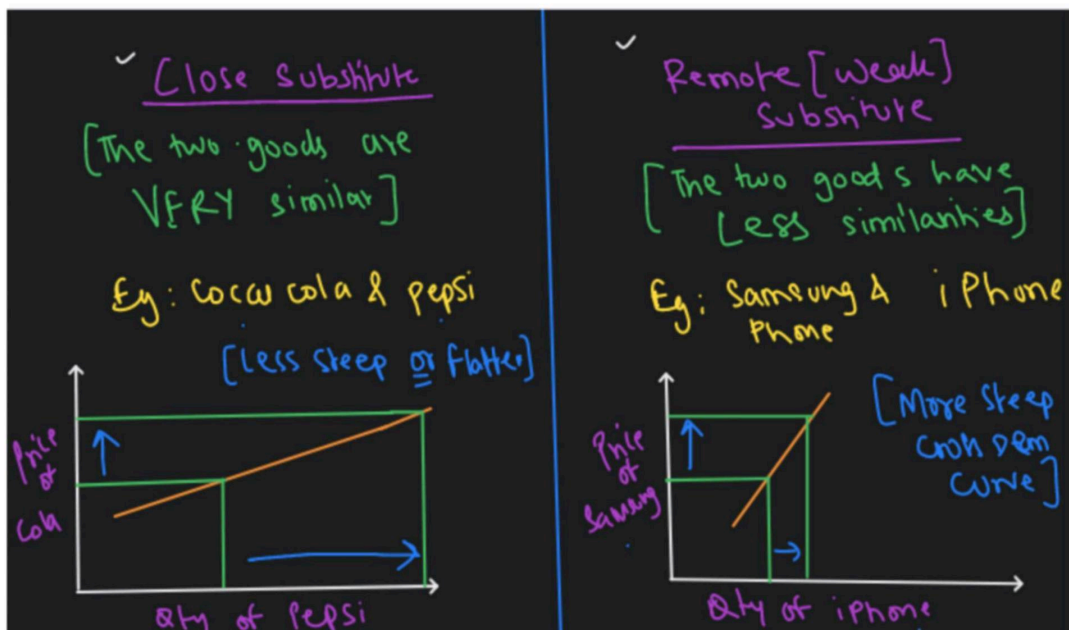 Close Substitute
[The two goods are
VERY similar]
Eg: Coca cola & pepsi
[Less steep or flatter]
Price
of
Cola
Qty of Pepsi
Remote [weak]
Substitute
[The two goods have
Less similarities]
Eg: Samsung & iPhone
Phone
[More steep
dem
curve]
Price
of
Samsung
Qty of iphone